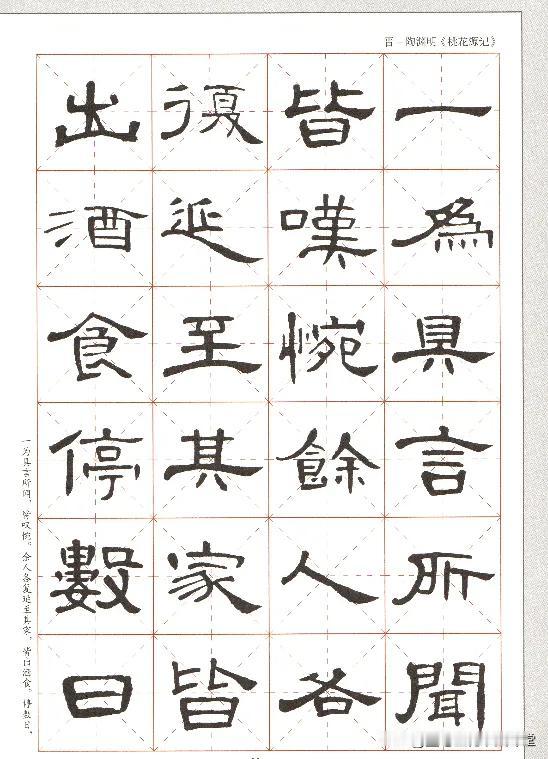 晋—陶渊明《桃花源记》
一為具言所聞
皆嘆惋餘人各
復延至其家皆
出酒食停數日
一为具言所闻，皆叹惋。余人各复延至其家，皆出酒食。停数日，